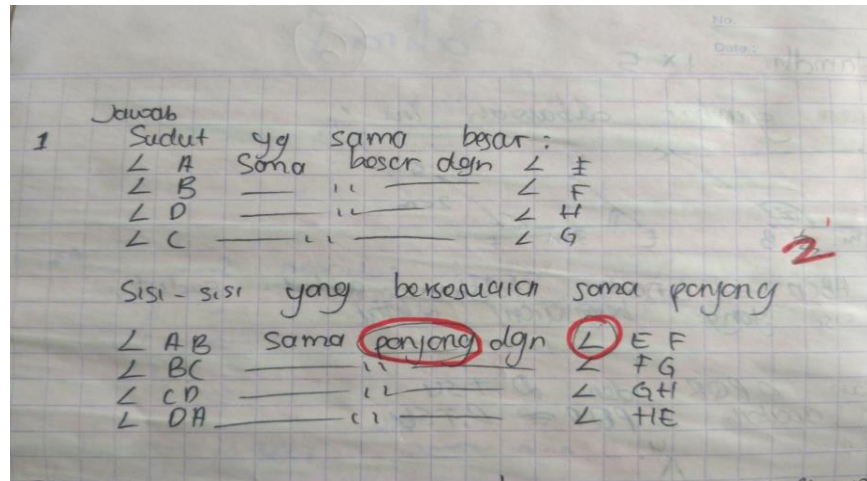 No.
Date:
Jawab
1 Sudut yg sama besar :
∠ A sama besar dgn ∠ E
∠ B —— " —— ∠ F
∠ D —— " —— ∠ H
∠ C —— " —— ∠ G
2
Sisi-sisi yang bersesuaian sama panjang
∠ AB sama panjang dgn ∠ EF
∠ BC —— " —— ∠ FG
∠ CD —— " —— ∠ GH
∠ DA —— " —— ∠ HE